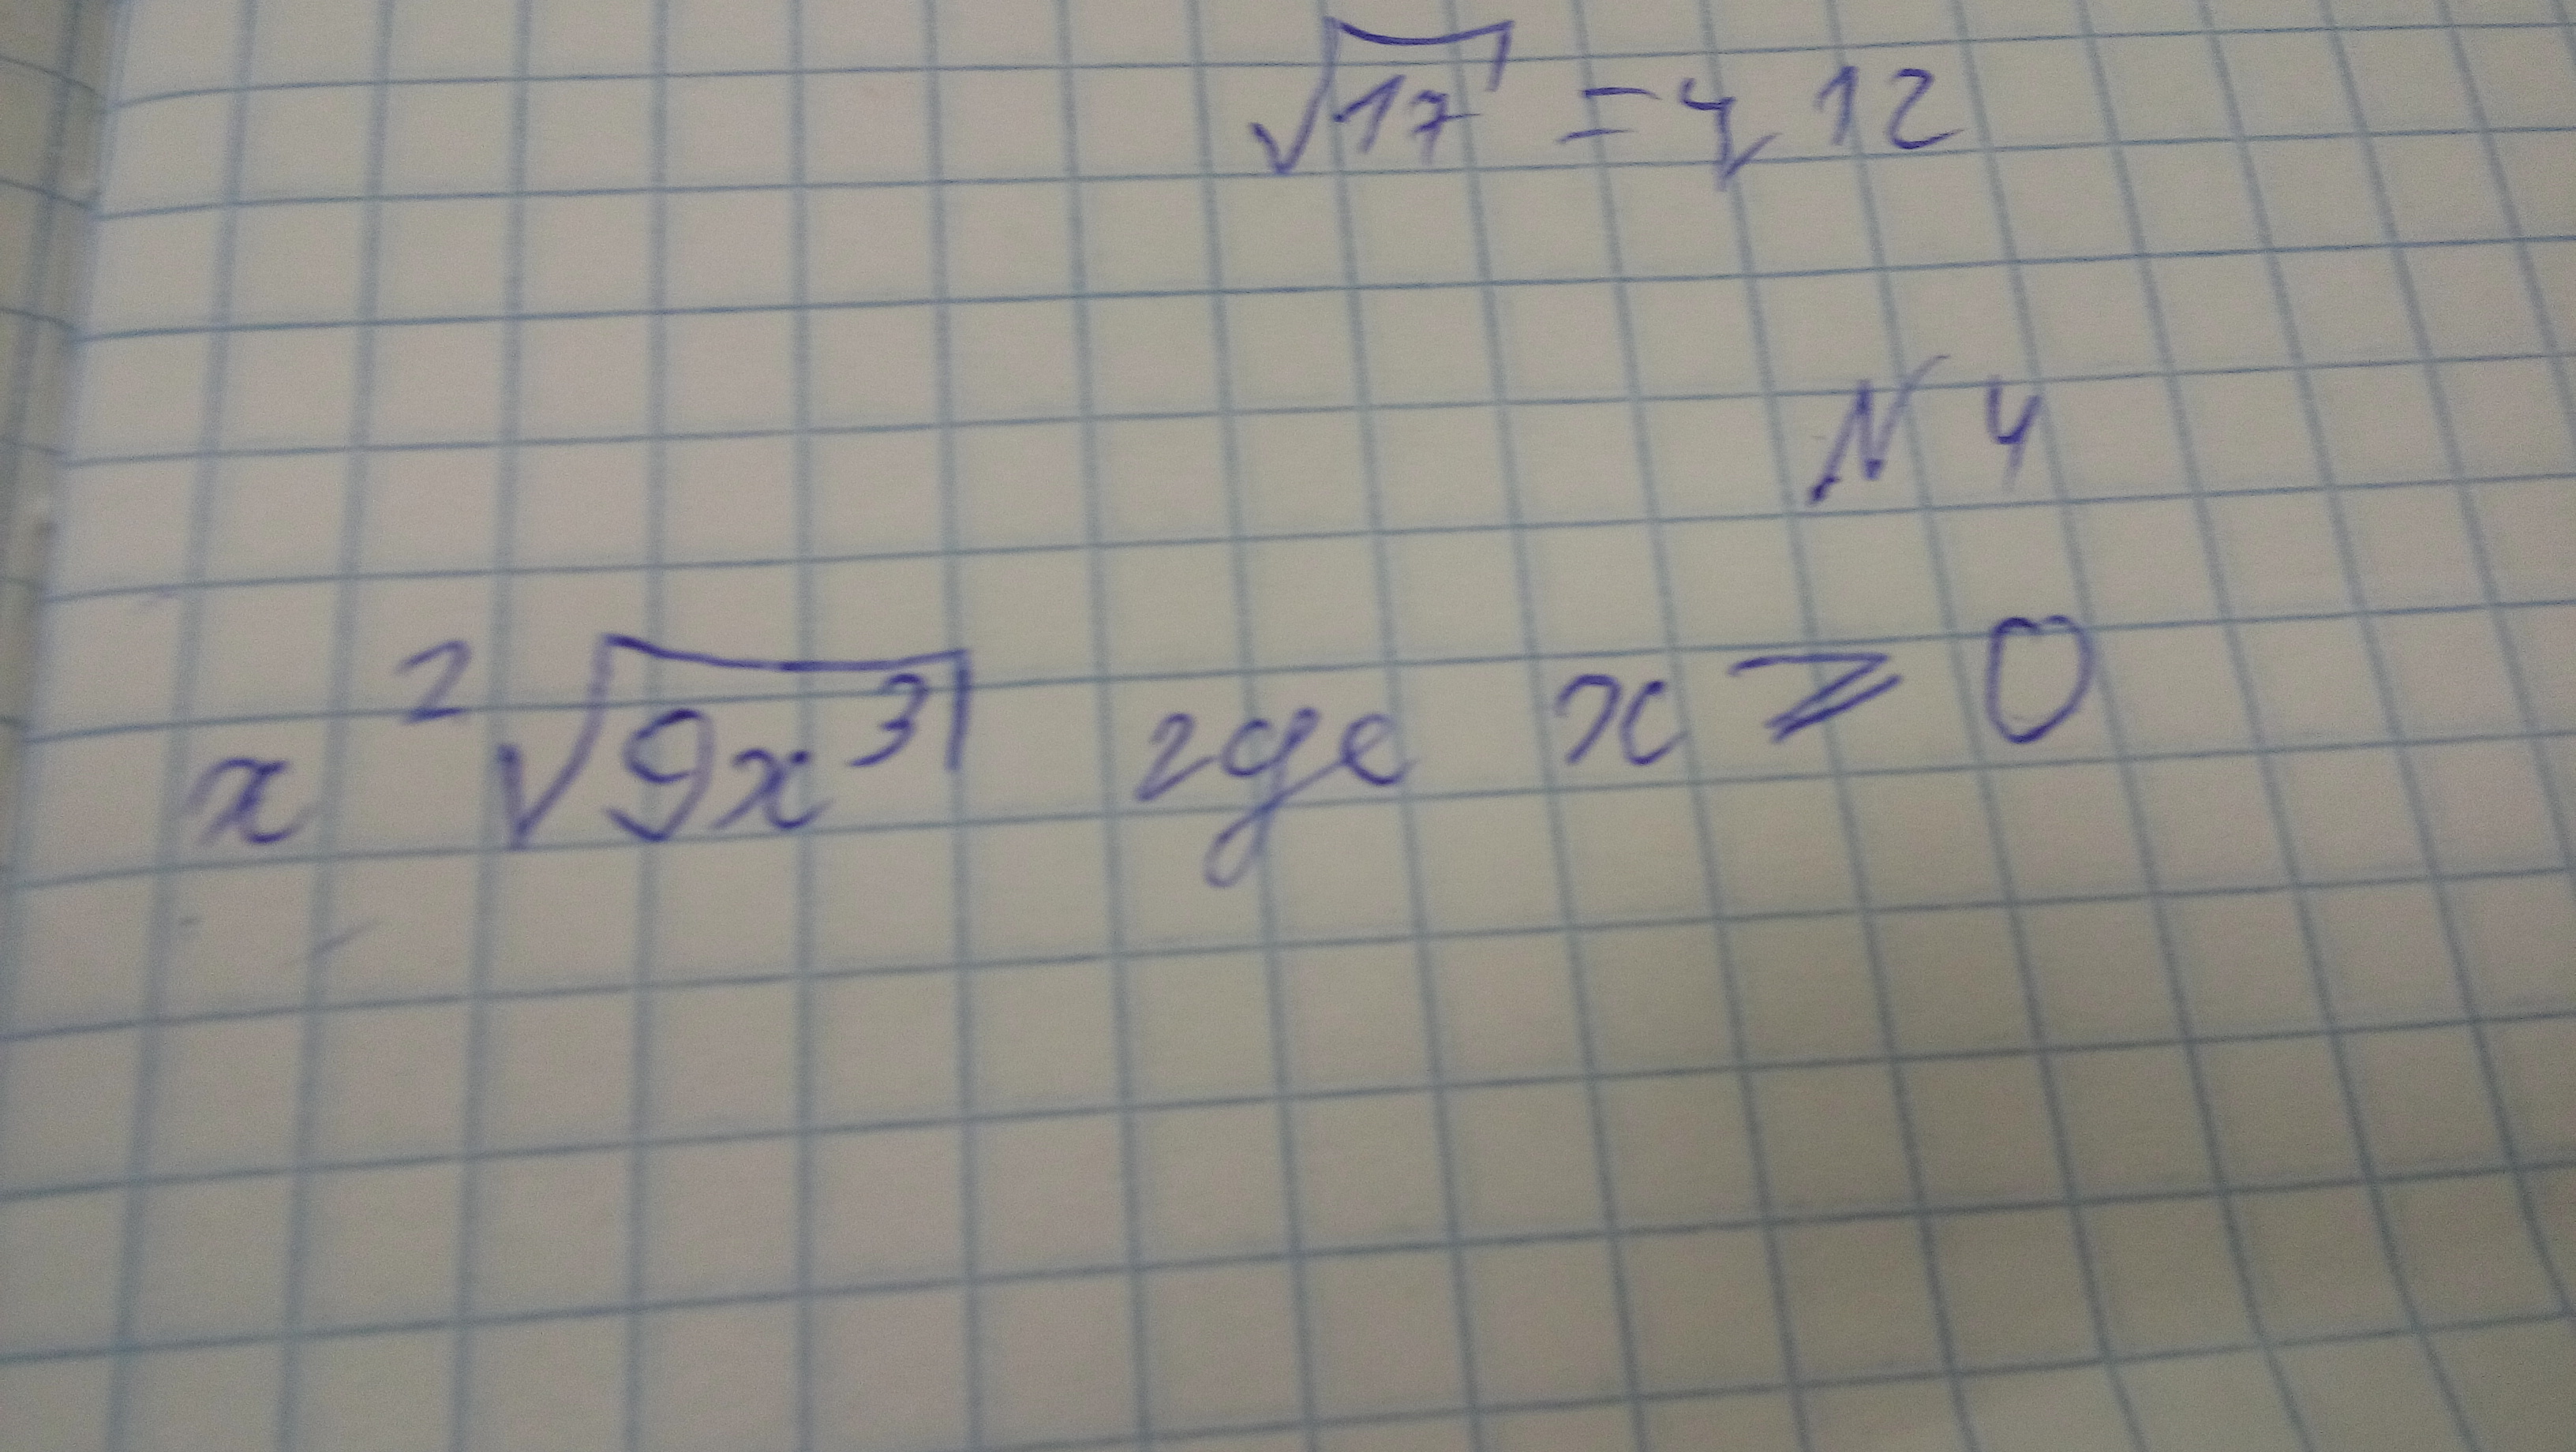 √17 = 4,12
N 4
x² √9x³ где x ≥ 0